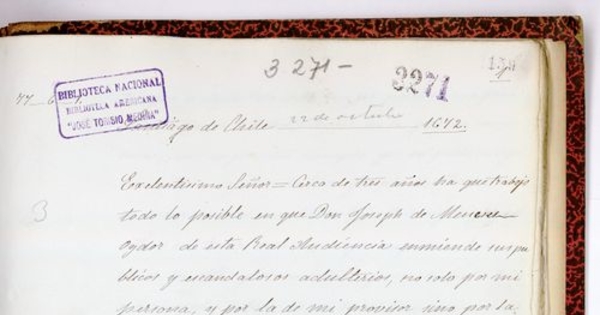 3271-
3271
77-6-
BIBLIOTECA NACIONAL
BIBLIOTECA AMERICANA
"JOSÉ TORIBIO MEDINA"
Santiago de Chile 22 de octubre 1672.
Exelentisimo Señor = Cerca de tres años ha que trabajo
todo lo posible en que Don Joseph de Meneses
Oydor de esta Real Audiencia enmiende sus pu-
blicos y escandalosos adulterios, no solo por mi
persona, y por la de mi provisor sino por la